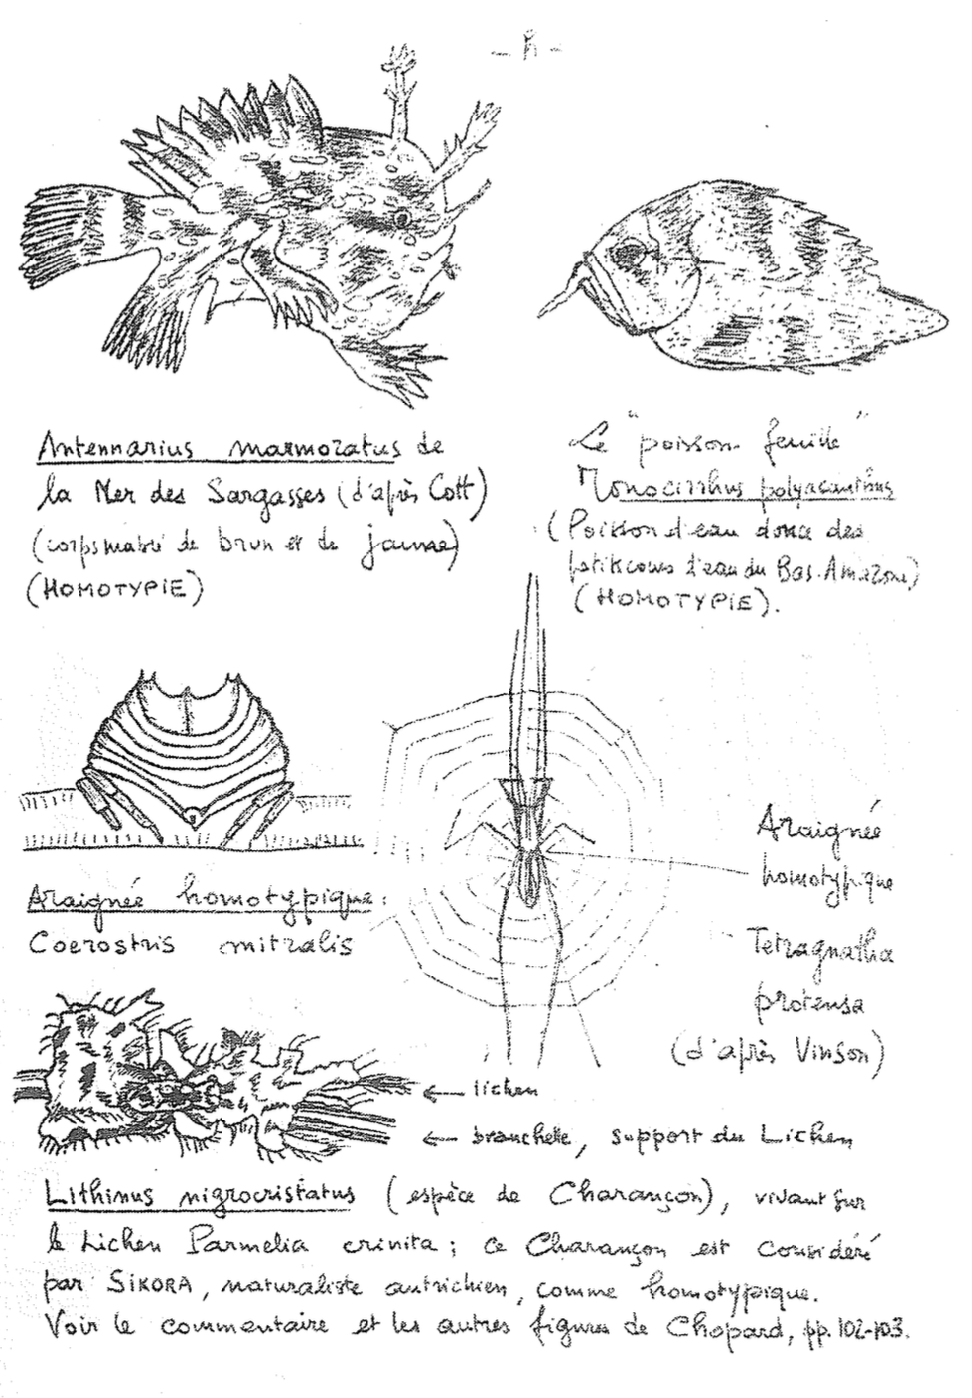 Antennarius marmoratus de
la Mer des Sargasses (d'après Cott)
(corps marbré de brun et de jaune)
(HOMOTYPIE)
Le "poisson-feuille"
Monocirrhus polyacanthus
(Poisson d'eau douce des
d'eau du Bas-Amazone)
(HOMOTYPIE).
Araignée homotypique :
Coerostris mitralis
Araignée
homotypique
Tetragnatha
protensa
(d'après Vinson)
← lichen
← branchette, support du Lichen
Lithinus nigrocristatus (espèce de Charançon), vivant sur
le Lichen Parmelia crinita ; ce Charançon est considéré
par SIKORA, naturaliste autrichien, comme homotypique.
Voir le commentaire et les autres figures de Chopard, pp. 102-103.